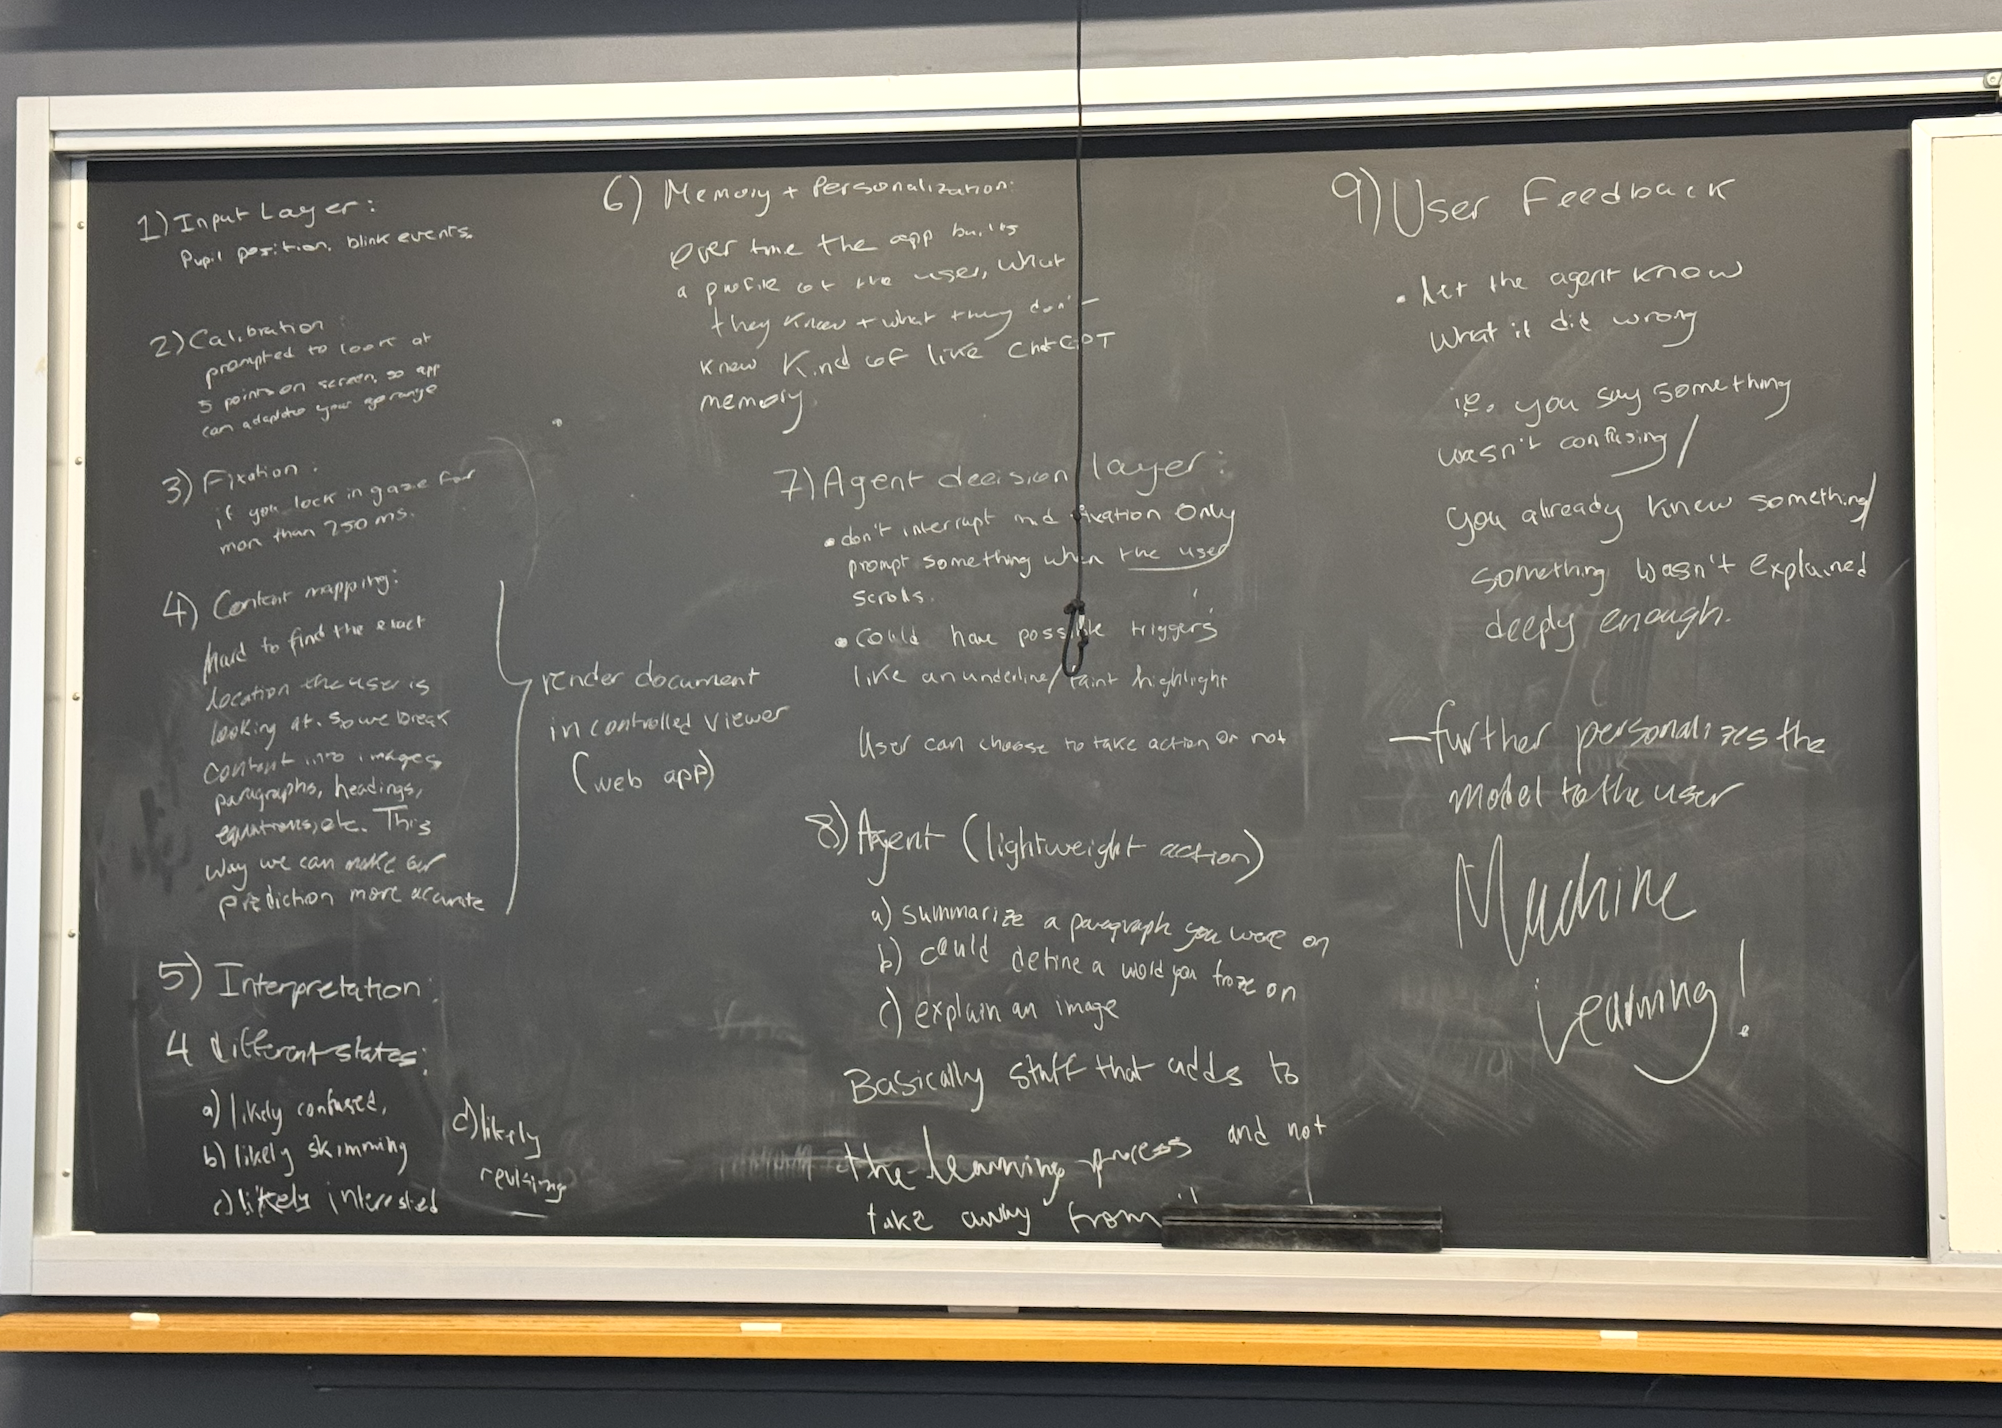 1) Input Layer:
Pupil position, blink events.
2) Calibration:
prompted to look at
5 points on screen, so app
can adapt to your
3) Fixation:
if you lock in gaze for
more than 250 ms.
4) Content mapping:
hard to find the exact
location the user is
looking at. So we break
content into images,
paragraphs, headings,
equations, etc. This
way we can make our
prediction more accurate
render document
in controlled viewer
(web app)
5) Interpretation:
4 different states:
a) likely confused,
b) likely skimming
c) likely interested
d) likely
revising
6) Memory + Personalization:
over time the app builds
a profile of the user, what
they know + what they don't
know kind of like ChatGPT
memory.
7) Agent decision layer:
• don't interrupt mid fixation only
prompt something when the user
scrolls.
• could have possible triggers
like an underline/faint highlight
User can choose to take action or not
8) Agent (lightweight action)
a) summarize a paragraph you were on
b) could define a word you froze on
c) explain an image
Basically stuff that adds to
the learning process and not
take away from
9) User Feedback
• let the agent know
what it did wrong
i.e. you say something
wasn't confusing/
you already knew something/
something wasn't explained
deeply enough.
— further personalizes the
model to the user
Machine
Learning!